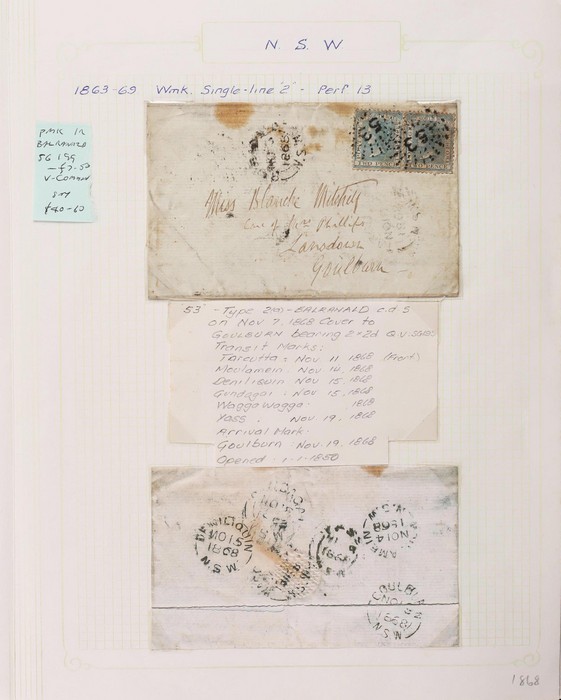 N. S. W
1863-69 Wmk. Single-line "2" - Perf 13
PMK IR
BALRANALD
56 199
- £7-50
V-Common
say
£40-60
53
53
N.S.W
1868
Miss Blanche Mitchell
Care of Mrs Phillips
Lansdown
Goulburn
"53" - Type 2(a) - BALRANALD c.d.s
on Nov 7, 1868 Cover to
GOULBURN bearing 2x2d Q.V.
Transit Marks:
Tarcutta = Nov 11 1868 (Front)
Moulamein Nov 14, 1868
Deniliquin Nov 15, 1868
Gundagai . Nov 15, 1868
Wagga Wagga . 1868
Yass . Nov. 19, 1868
Arrival Mark.
Goulburn Nov. 19 1868
Opened - 1-1-1850
DENILIQUIN
NO 15
1868
N.S.W
NO 14
1868
N.S.W
GOULBURN
1868
N.S.W
1868